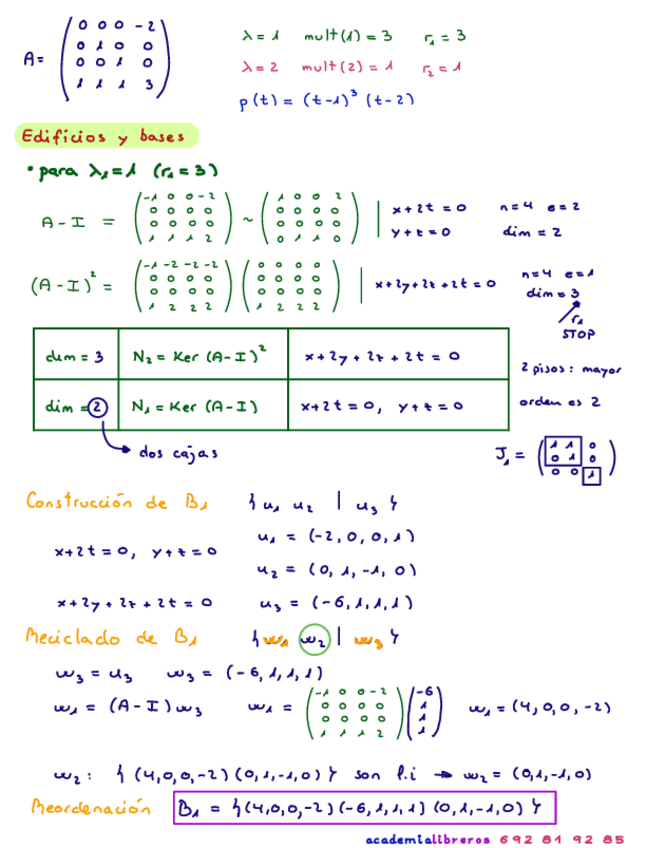 A = ( 0 0 0 -2 / 0 1 0 0 / 0 0 1 0 / 1 1 1 3 )
λ=1 mult(1)=3 r₁=3
λ=2 mult(2)=1 r₂=1
p(t) = (t-1)³ (t-2)
Edificios y bases
• para λ₁=1 (r₁=3)
A-I = ( -1 0 0 -2 / 0 0 0 0 / 0 0 0 0 / 1 1 1 2 ) ~ ( 1 0 0 2 / 0 0 0 0 / 0 0 0 0 / 0 1 1 0 ) | x+2t=0 y+z=0 n=4 e=2 dim=2
(A-I)² = ( -1 -2 -2 -2 / 0 0 0 0 / 0 0 0 0 / 1 2 2 2 ) ( 0 0 0 0 / 0 0 0 0 / 0 0 0 0 / 1 2 2 2 ) | x+2y+2z+2t=0 n=4 e=1 dim=3
r₁
STOP
dim=3 N₂ = Ker (A-I)² x+2y+2z+2t=0
dim=2 N₁ = Ker (A-I) x+2t=0, y+z=0
2 pisos: mayor
orden es 2
dos cajas
J₁ = ( 1 1 0 / 0 1 0 / 0 0 1 )
Construcción de B₁ { u₁ u₂ | u₃ }
x+2t=0, y+z=0
u₁ = (-2,0,0,1)
u₂ = (0,1,-1,0)
x+2y+2z+2t=0 u₃ = (-6,1,1,1)
Reciclado de B₁ { w₁ w₂ | w₃ }
w₃ = u₃ w₃ = (-6,1,1,1)
w₁ = (A-I) w₃ w₁ = ( -1 0 0 -2 / 0 0 0 0 / 0 0 0 0 / 1 1 1 2 ) ( -6 / 1 / 1 / 1 ) w₁ = (4,0,0,-2)
w₂: { (4,0,0,-2) (0,1,-1,0) } son l.i → w₂ = (0,1,-1,0)
Reordenación B₁ = {(4,0,0,-2) (-6,1,1,1) (0,1,-1,0) }
academialibreros 692 81 92 85